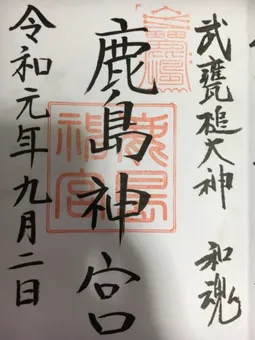 武甕槌大神 和魂
鹿島神宮
令和元年九月二日
鹿島神宮